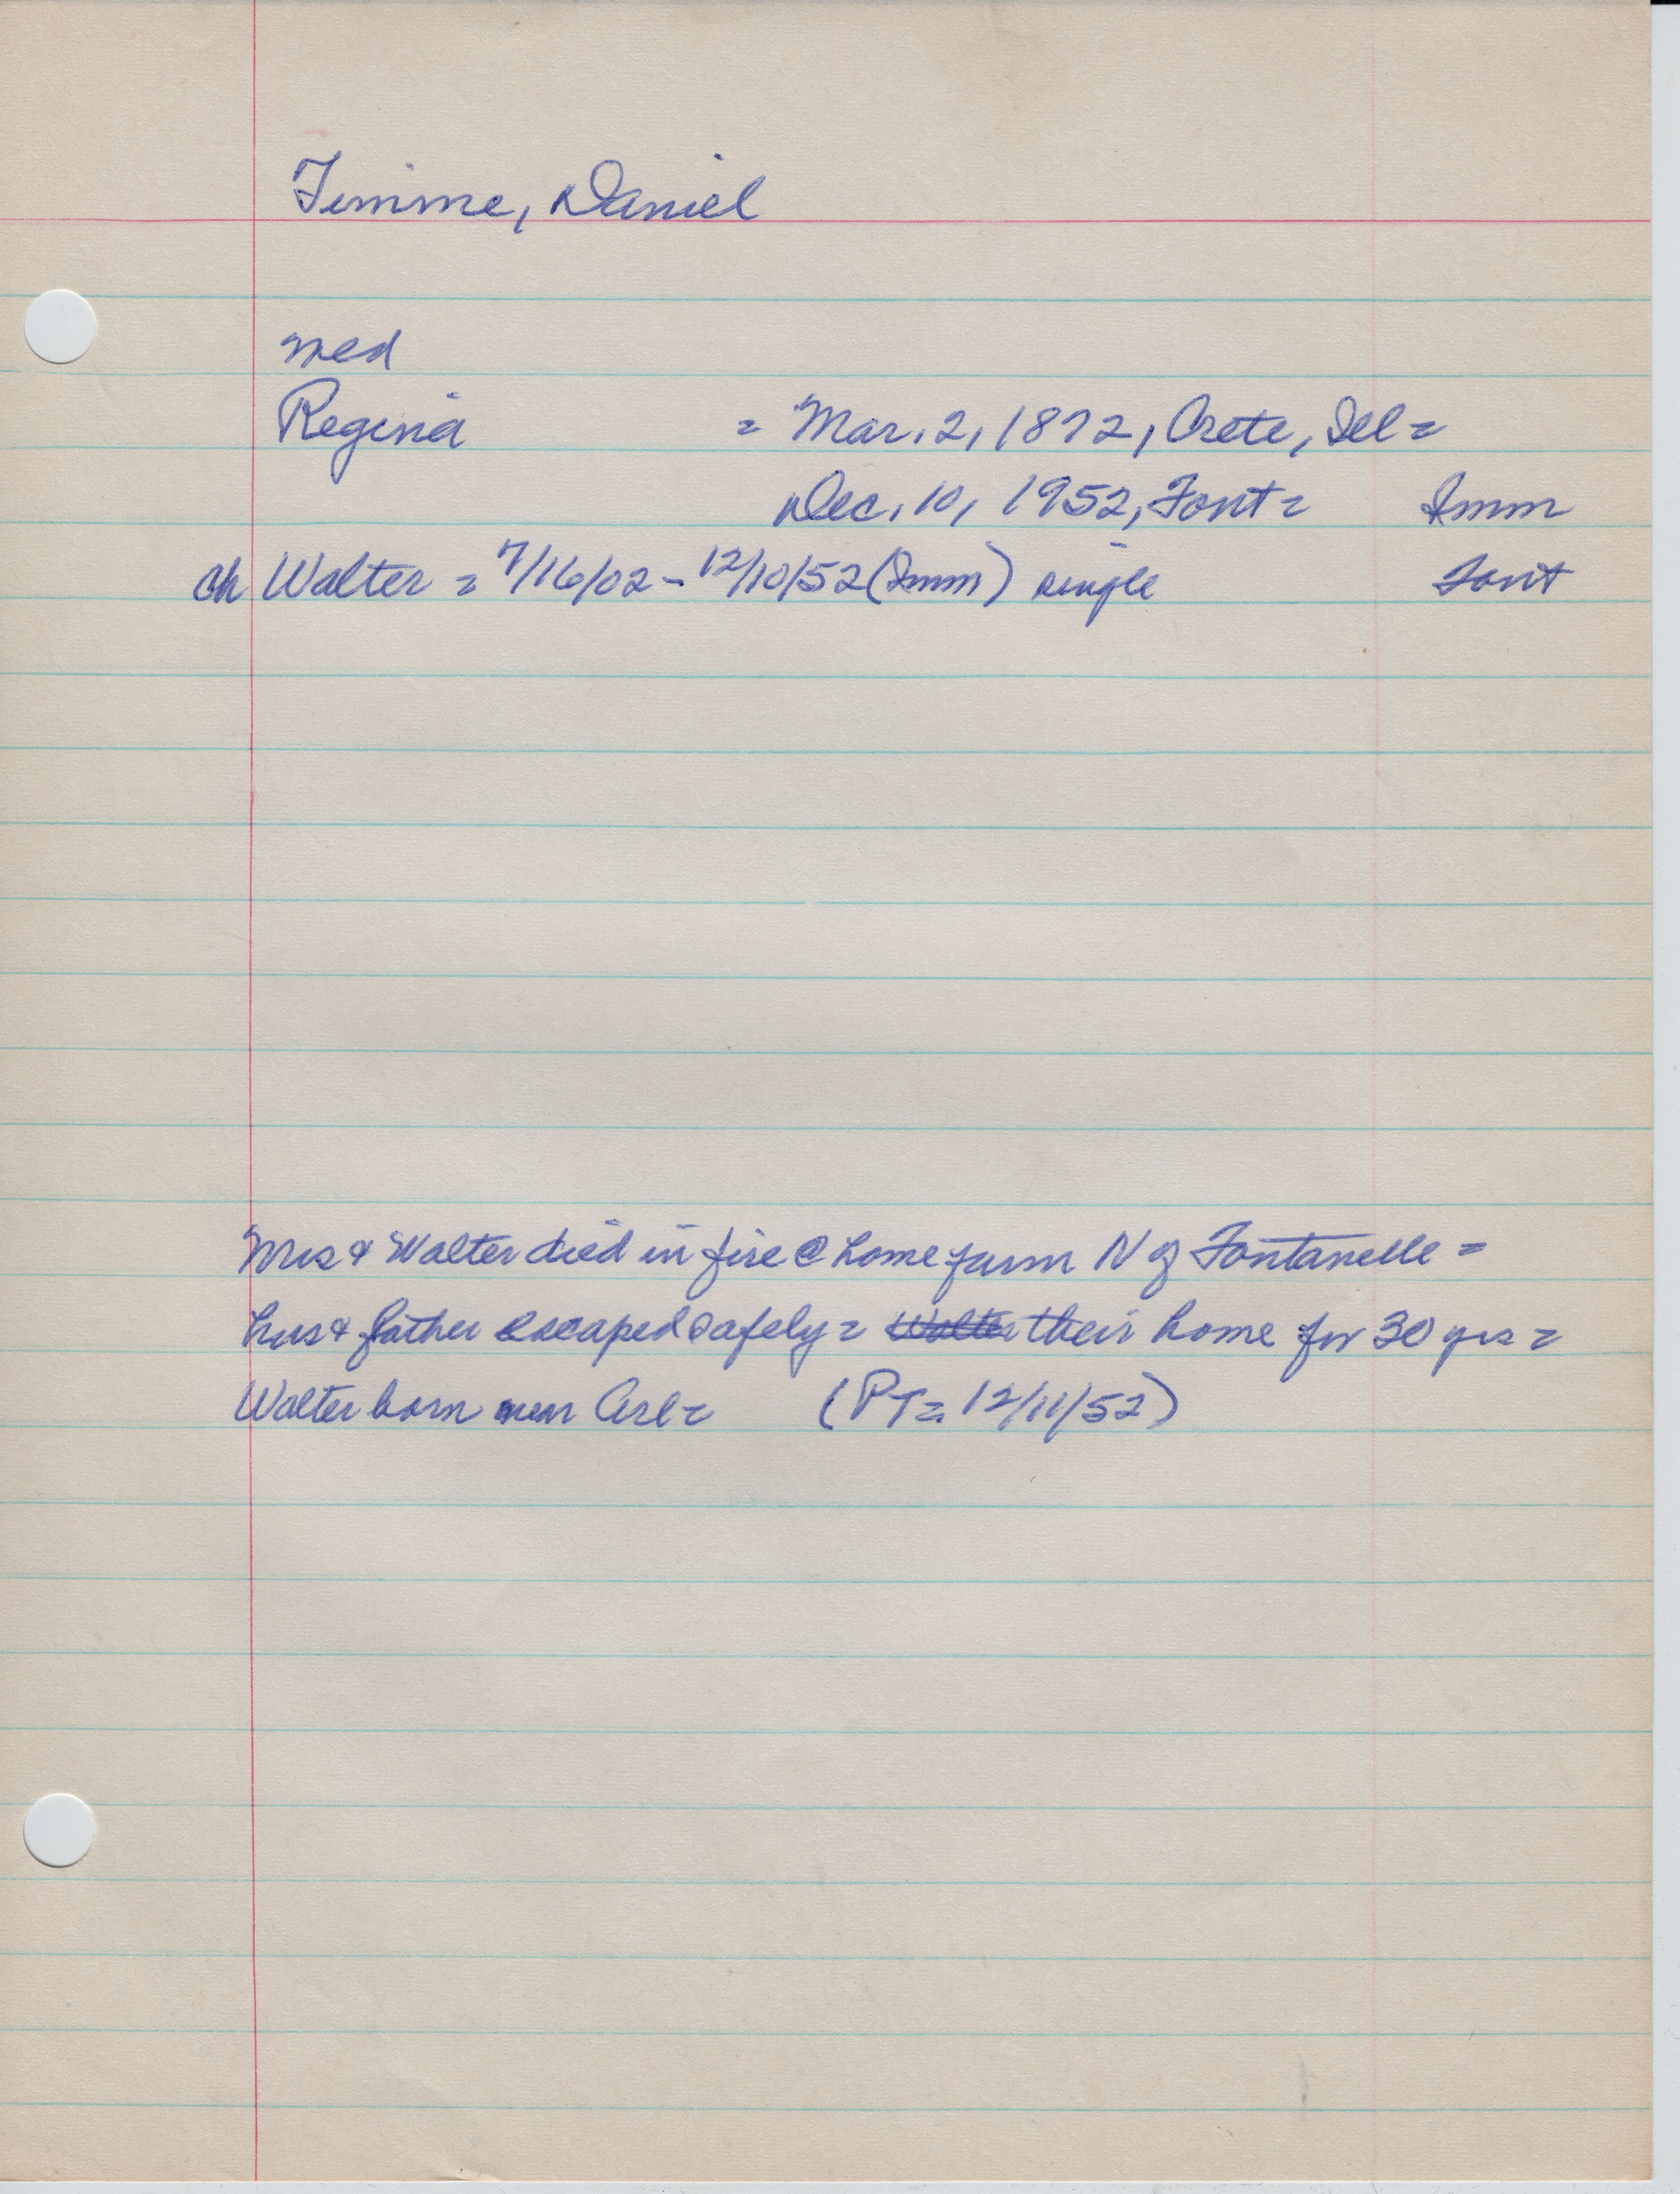 Timme, Daniel
med
Regina = Mar. 2, 1872, Crete, Ill =
Dec. 10, 1952, Font = Imm
ch Walter = 7/16/02 - 12/10/52 (Imm) single Font
Mrs & Walter died in fire @ home farm N of Fontanelle =
hus & father escaped safely = Walter their home for 30 yrs =
Walter born near Arl = (PT = 12/11/52)